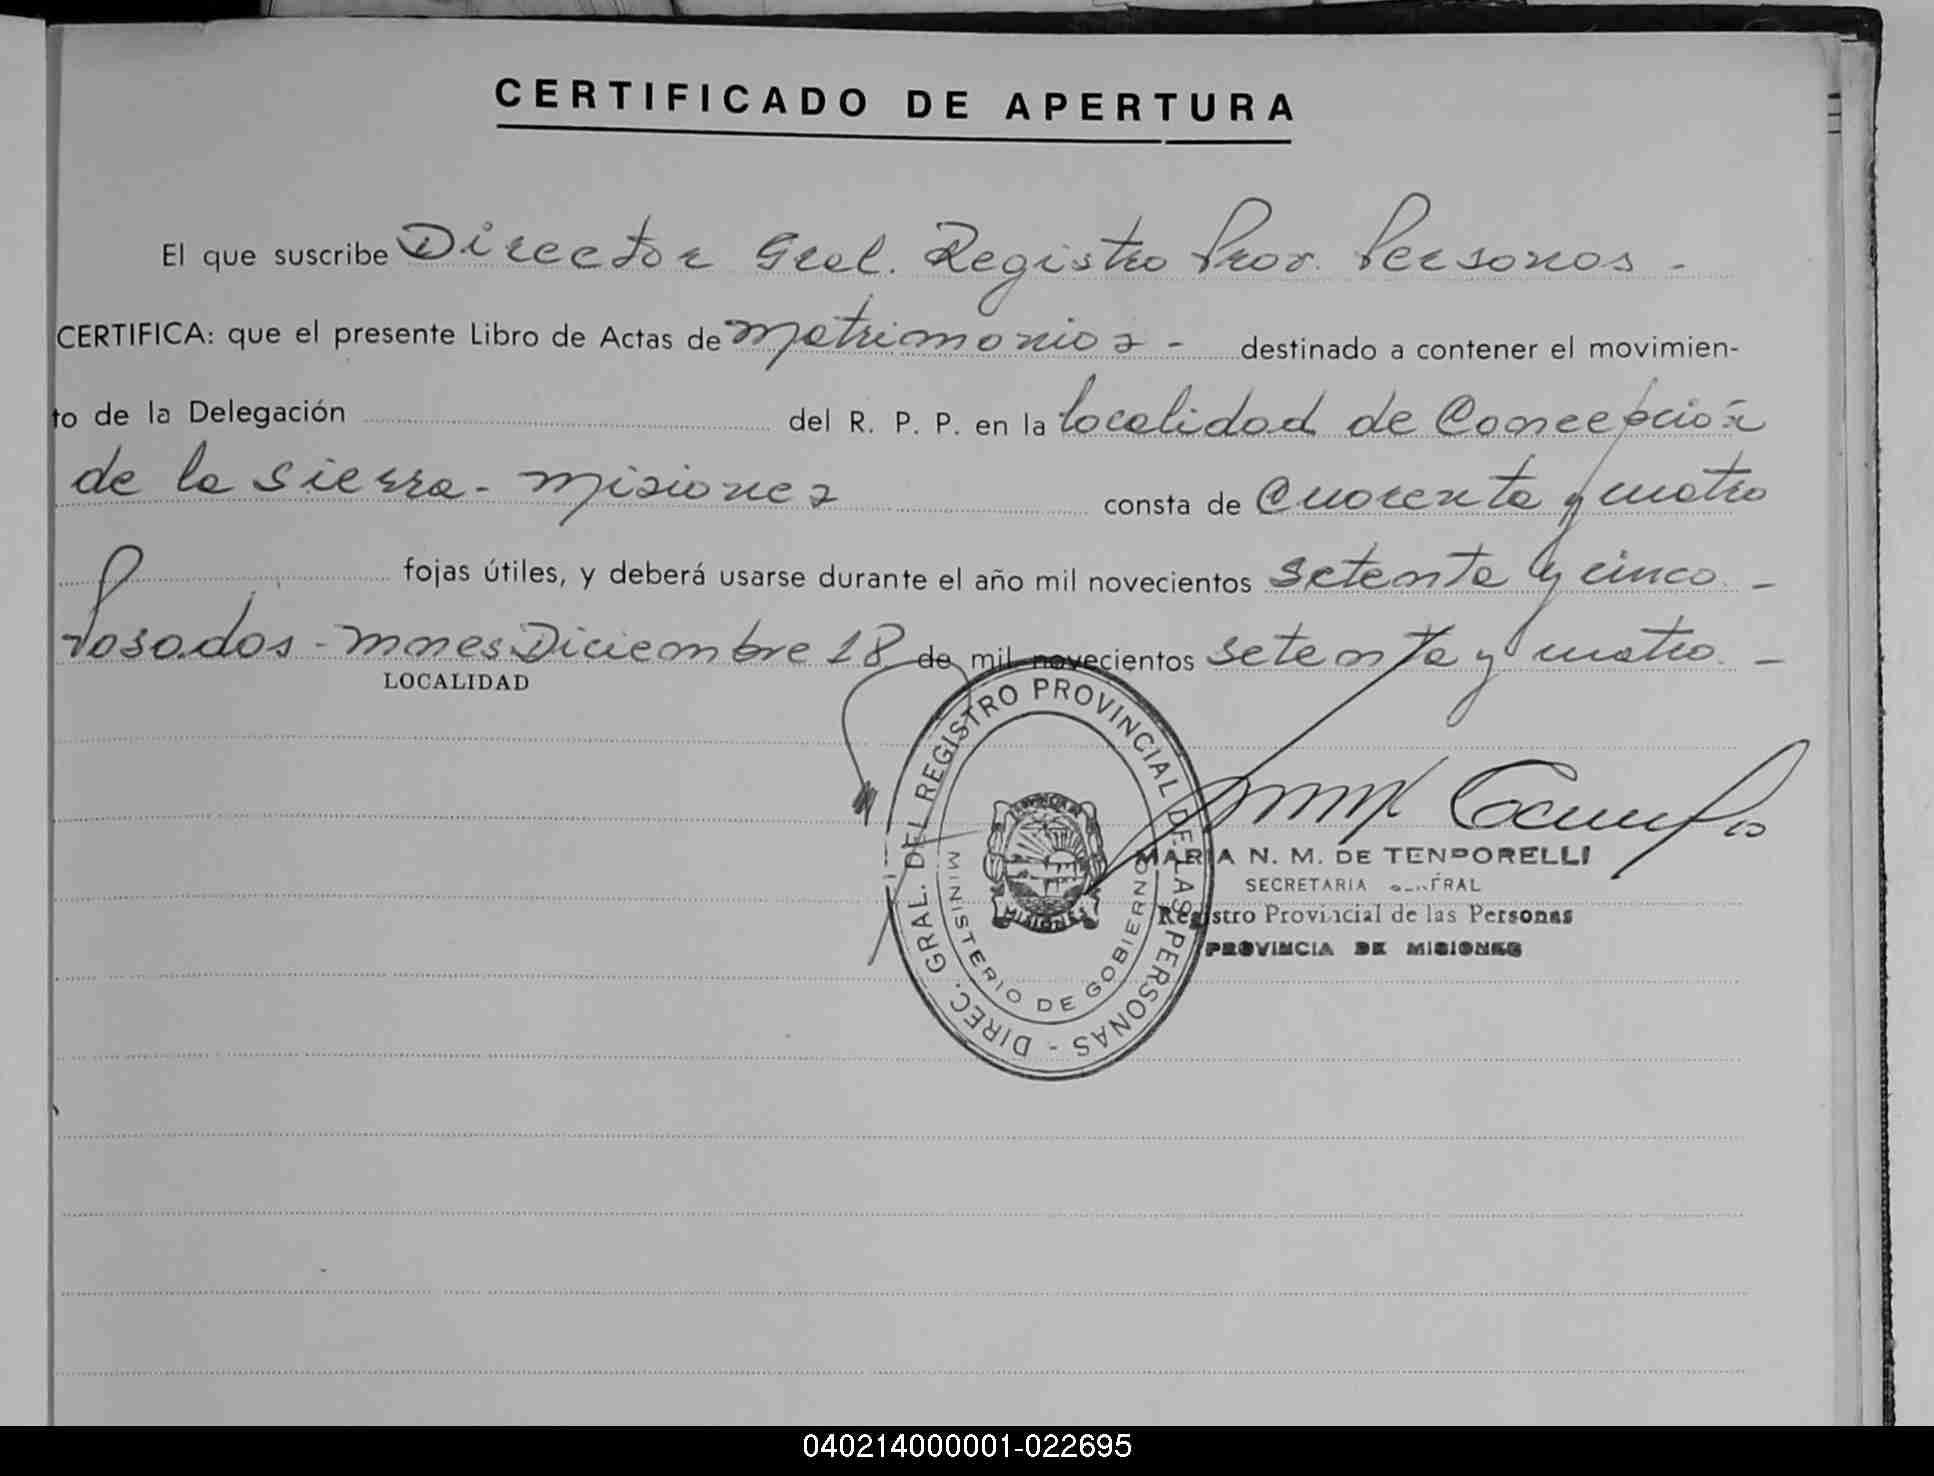 CERTIFICADO DE APERTURA
El que suscribe Director Gral. Registro Prov. Personas -
CERTIFICA: que el presente Libro de Actas de Matrimonios - destinado a contener el movimien-
to de la Delegación del R. P. P. en la localidad de Concepción
de la Sierra - Misiones consta de Cuarenta y cuatro
fojas útiles, y deberá usarse durante el año mil novecientos setenta y cinco -
Posadas - Mnes Diciembre 18 de mil novecientos setenta y cuatro. -
LOCALIDAD
DIREC. GRAL. DEL REGISTRO PROVINCIAL DE LAS PERSONAS -
MINISTERIO DE GOBIERNO
MISIONES
MARIA N. M. DE TEMPORELLI
SECRETARIA GENERAL
Registro Provincial de las Personas
PROVINCIA DE MISIONES
040214000001-022695